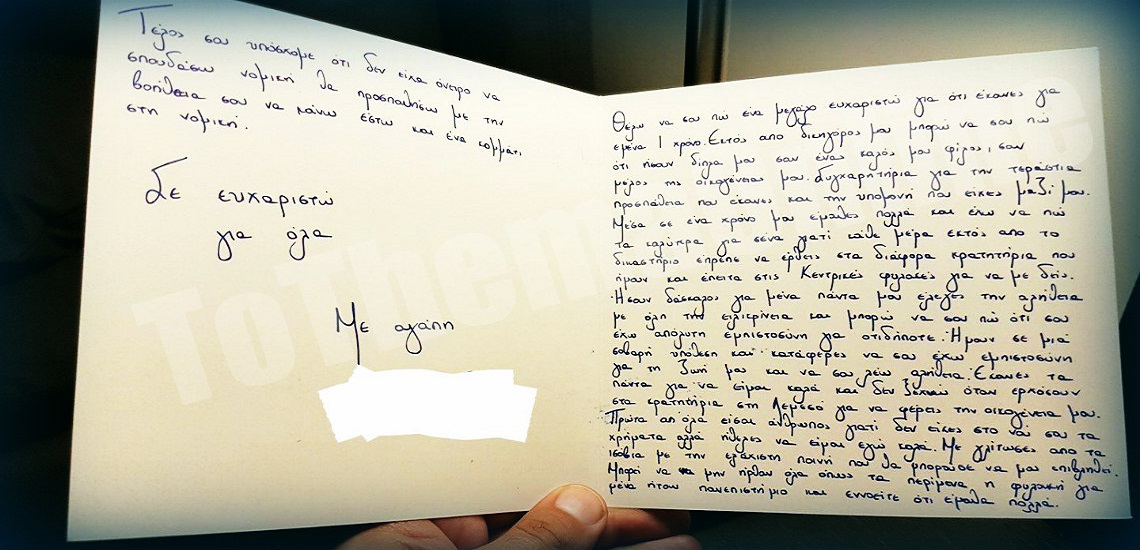 Τέλος σου υπόσχομε ότι δεν είχα όνειρο να
σπουδάσω νομική θα προσπαθήσω με την
βοήθεια σου να κάνω έστω και ένα κομμάτι
στη νομική.
Σε ευχαριστώ
για όλα
Με αγάπη
Θέλω να σου πω ένα μεγάλο ευχαριστώ για ότι έκανες για
εμένα 1 χρόνο. Εκτός απο δικηγόρος μου μπορώ να σου πω
ότι ήσουν δίπλα μου σαν ένας καλός μου φίλος, σαν
μέλος της οικογένειας μου. Συγχαρητήρια για την τεράστια
προσπάθεια που έκανες και την υπομονή που είχες μαζί μου.
Μέσα σε ένα χρόνο μου έμαθες πολλά και έχω να πω
τα καλύτερα για σένα γιατί κάθε μέρα εκτός απο το
δικαστήριο έπρεπε να έρθεις στα διάφορα κρατητήρια που
ήμουν και έπειτα στις Κεντρικές φυλακές για να με δείς.
Ήσουν δάσκαλος για μένα πάντα μου έλεγες την αλήθεια
με όλη την ειλικρίνεια και μπορώ να σου πω ότι σου
έχω απόλυτη εμπιστοσύνη για οτιδήποτε. Ήμουν σε μιά
σοβαρή υπόθεση και κατάφερες να σου έχω εμπιστοσύνη
για τη ζωή μου και να σου λέω αλήθεια. Έκανες τα
πάντα για να είμαι καλά και δεν ξεχνώ όταν ερχόσουν
στα κρατητήρια στη Λεμεσό για να φέρεις την οικογένεια μου.
Πρώτα απ όλα είσαι άνθρωπος γιατί δεν είχες στο νού σου τα
χρήματα αλλά ήθελες να είμαι εγώ καλά. Με γλίτωσες απο τα
ισόβια με την ελάχιστη ποινή που θα μπορούσε να μου επιβληθεί.
Μπορεί να μην ήρθαν όλα όπως τα περίμενα, η φυλακή για
μένα ήταν πανεπιστήμιο και εννοείτε ότι έμαθα πολλά.